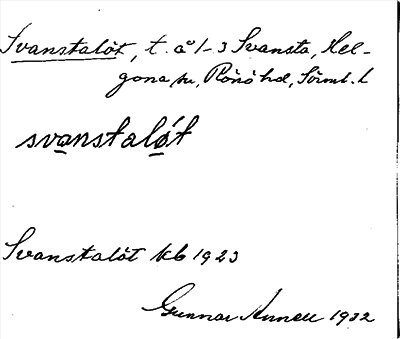 Svanstalöt, t. å 1-3 Svansta, Hel-
gona sn, Rönö hd, Sörml. l
svanstalöt
Svanstalöt kb 1923
Gunnar Annell 1932